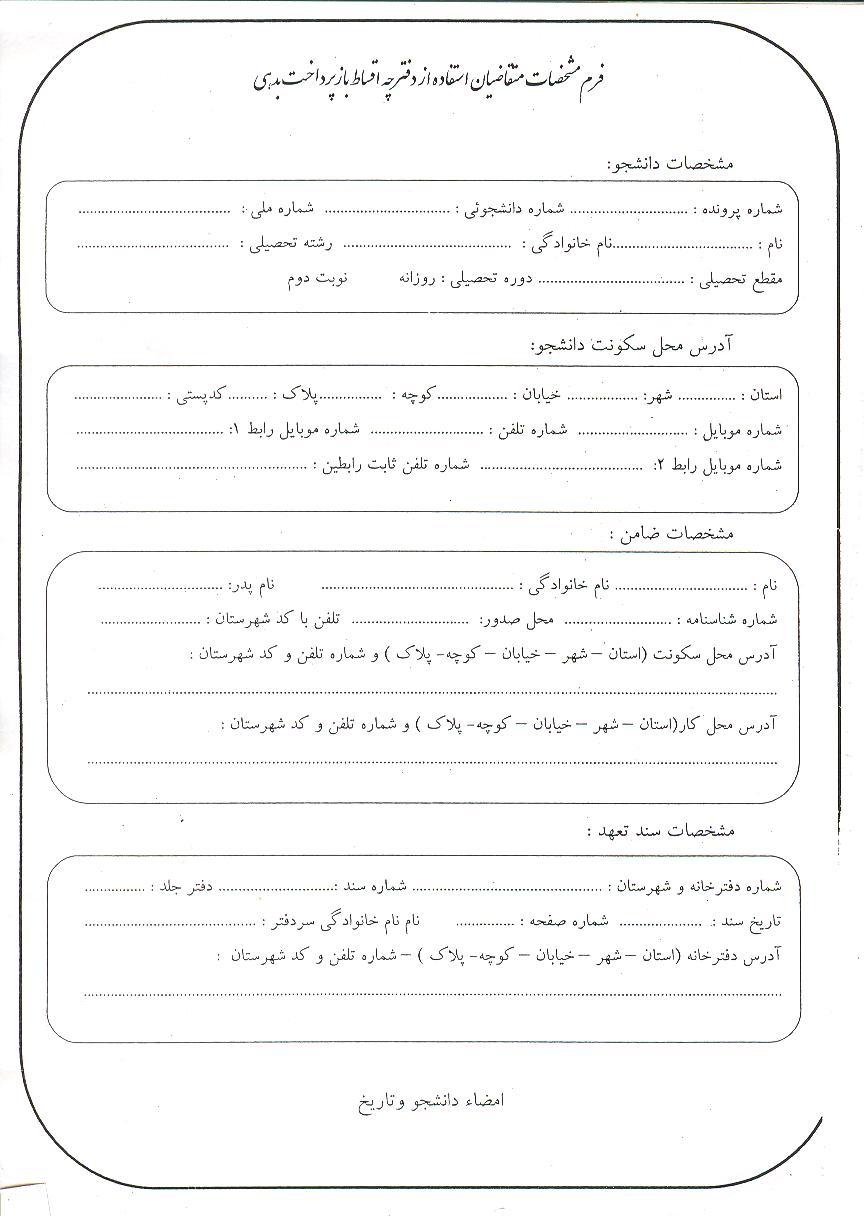 فرم مشخصات متقاضیان استفاده از دفترچه اقساط بازپرداخت بدهی
مشخصات دانشجو:
شماره پرونده : .............................. شماره دانشجوئی : ................................ شماره ملی : .......................................
نام : ....................................نام خانوادگی : ........................................... رشته تحصیلی : .......................................
مقطع تحصیلی : ..................................... دوره تحصیلی : روزانه نوبت دوم
آدرس محل سکونت دانشجو:
استان : ............... شهر: .................. خیابان : ..................کوچه : ................پلاک : ..........کدپستی : .......................
شماره موبایل : ............................ شماره تلفن : ............................. شماره موبایل رابط ۱: ......................................
شماره موبایل رابط ۲: .......................................... شماره تلفن ثابت رابطین : ...........................................................
مشخصات ضامن :
نام : .................................. نام خانوادگی : ................................................. نام پدر: ................................
شماره شناسنامه : ............................ محل صدور: .............................. تلفن با کد شهرستان : ..........................
آدرس محل سکونت (استان – شهر – خیابان – کوچه- پلاک ) و شماره تلفن و کد شهرستان :
................................................................................................................................................................
آدرس محل کار(استان – شهر – خیابان – کوچه- پلاک ) و شماره تلفن و کد شهرستان :
................................................................................................................................................................
مشخصات سند تعهد :
شماره دفترخانه و شهرستان : ................................................. شماره سند :.............................. دفتر جلد : ................
تاریخ سند : ...................... شماره صفحه : ............... نام نام خانوادگی سردفتر : ............................................
آدرس دفترخانه (استان – شهر – خیابان – کوچه- پلاک ) – شماره تلفن و کد شهرستان :
................................................................................................................................................................
امضاء دانشجو وتاریخ